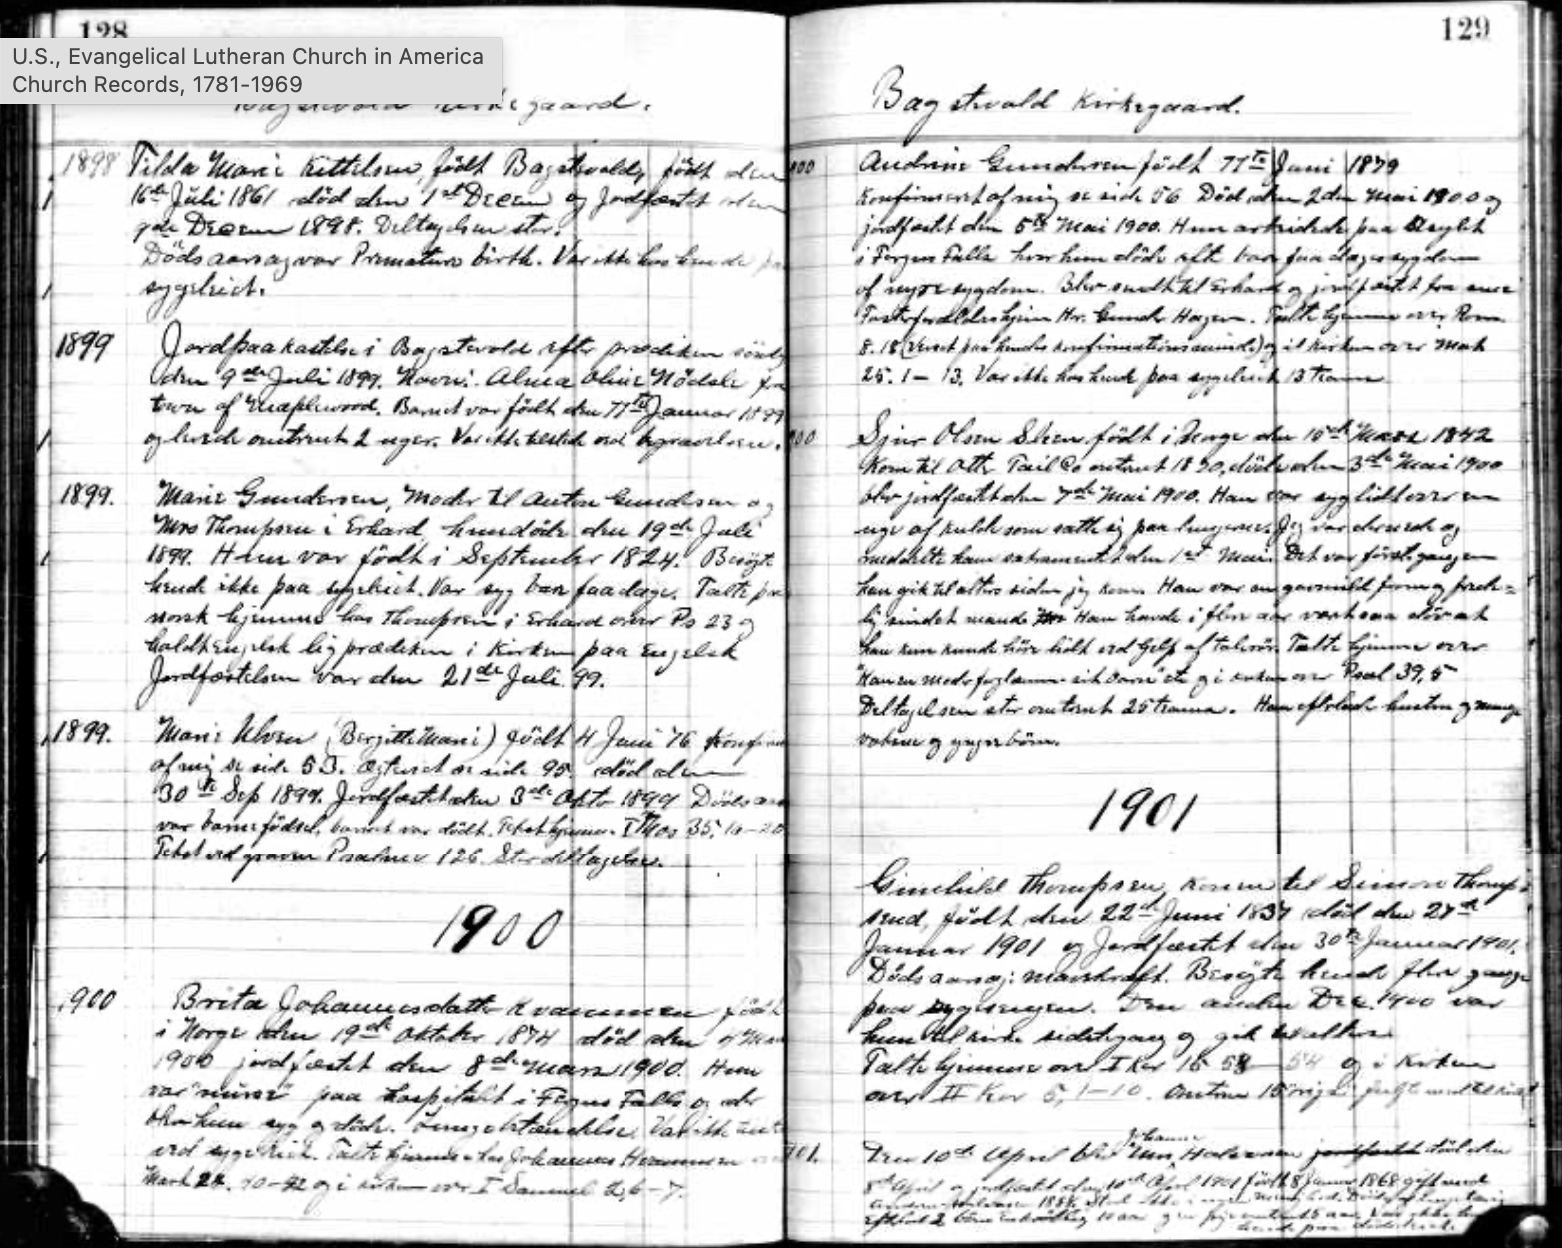 128
U.S., Evangelical Lutheran Church in America
Church Records, 1781-1969
Kirkegaard.
1898 Tilda Marie Kittelsen, född Bagstevold, född den
16de Juli 1861 död den 1st Decem og Jordfæstet den
9de Decem 1898. Deltagelsen stor.
Dödsaarsag var Premature birth. Var ikke hos hende paa
sygeleiet.
1899 Jordpaakastelse i Bagstevold efter prædiken sönd
den 9de Juli 1899. Navn: Alma Oline Nödsle fra
town of Maplewood. Barnet var födt den 11te Januar 1899
og levede omtrent 2 uger. Var ikke tilstede ved begravelsen.
1899. Marie Gundersen, Moder til Anton Gundersen og
Mrs Thompsen i Erhard, hun döde den 19de Juli
1899. Hun var födt i September 1824. Besögte
hende ikke paa sygeleiet. Var syg bare faa dage. Talte paa
norsk hjemme hos Thompsen i Erhard over Ps 23 og
holdt Engelsk ligprædiken i Kirken paa Engelsk
Jordfæstelsen var den 21de Juli 99.
1899. Marie Ulven (Bergitte Marie) födt 4 Juni 76
af mig se side 53. ægteviet se side 95. död den
30te Sep 1899. Jordfæstet den 3de Okto 1899 Dödsaars
var barnefödsel, barnet var dödt. Text hjemme I Mos 35, 16-20
Text ved graven Psalmer 126. Stor deltagelse.
1900
1900 Brita Johannesdatter Kvammen födt
i Norge den 19de Oktober 1874 död den
1900 jordfæstet den 8de Mars 1900. Hun
var "nurse" paa hospitalet i Fergus Falls og der
blev hun syg og döde. Var ikke
ved sygeleiet. Talte hjemme hos Johannes Kvammen
Mark 40-42 og i kirken over I Samuel 2, 6-7.
129
Bagstevold Kirkegaard.
Andrine Gundersen födt 11te Juni 1879
Konfirmeret af mig se side 56 Död den 2den Mai 1900 og
jordfæstet den 5te Mai 1900. Hun arbeidede paa Asylet
i Fergus Falls hvor hun döde efter bare faa dages sygdom
af nyresygdom. Blev sendt til Erhard og jordfæstet fra sine
Fosterforældres hjem Hr. Gunder Hagen. Talte hjemme over Rom
8. 18 (Verset paa hendes konfirmationsminde) og i kirken over Mat
25. 1-13. Var ikke hos hende paa sygeleiet 13 teams
Sjur Olsen Steen födt i Norge den 15de Mars 1842
Kom til Otter Tail Co omtrent döde den 3de Mai 1900
blev jordfæstet den 7de Mai 1900. Han var syg lidt over en
uge af kulde som satte sig paa lungerne. Jeg var dernede og
meddelte ham sakramentet den 1st Mai. Det var förste gangen
han gik til alters siden jeg kom. Han var en gavmild from og frede-
lig sindet mand. Han havde i flere aar været saa döv at
han kun kunde höre lidt ved hjelp af talerör. Talte hjemme over
"Kan en moder forglemme sit barn" etc og i kirken over Psal 39, 5
Deltagelsen stor omtrent 25 teams. Han efterlod hustru og mange
voksne og yngre börn.
1901
Gunhild Thompsen, konen til Simon Thomp-
send, födt den 22de Juni 1837 död den 27de
Januar 1901 og Jordfæstet den 30te Januar 1901.
Dödsaarsag: mavekræft. Besögte hende flere gange
paa sygesengen. Den anden Dec. 1900 var
hun til kirke sidste gang og gik til alters
Talte hjemme over I Kor 15 54 og i Kirken
over II Kor 5, 1-10. Omtren 15 rigs
Johanne
Den 10de April blev Mrs Halvorsen jordfæstet död den
8de April og jordfæstet den 10de April 1901 födt 8 Januar 1868 gift med
Anders Halvorsen 1888.